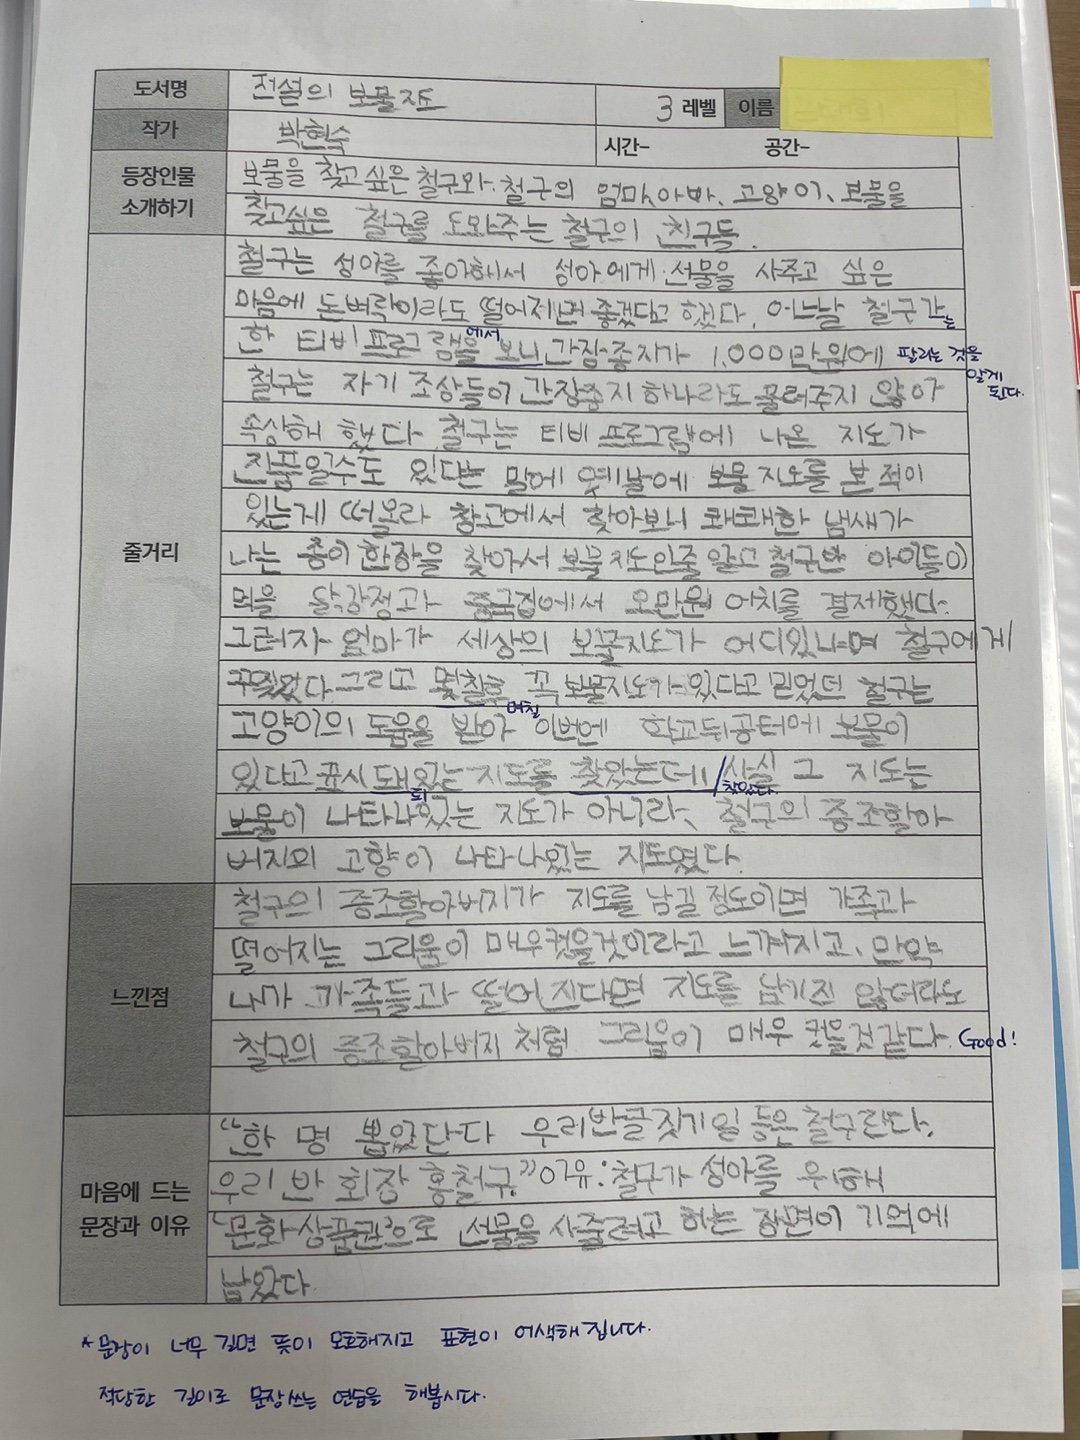 도서명 전설의 보물지도 3 레벨 이름
작가 박현숙 시간- 공간-
등장인물 소개하기
보물을 찾고 싶은 철구와, 철구의 엄마,아빠, 고양이, 보물을
찾고싶은 철구를 도와주는 철구의 친구들.
줄거리
철구는 성아를 좋아해서 성아에게 선물을 사주고 싶은
마음에 돈벼락이라도 떨어지면 좋겠다고 했다. 어느날 철구가는
한 티비 프로그램을에서 보니 간장종지가 1,000만원에 팔리는 것을 알게 된다.
철구는 자기 조상들이 간장종지 하나라도 물려주지 않아
속상해 했다. 철구는 티비 프로그램에 나온 지도가
진품일수도 있다는 말에 옛날에 보물 지도를 본 적이
있는게 떠올라 창고에서 찾아보니 쾌쾌한 냄새가
나는 종이 한장을 찾아서 보물지도인줄 알고 철구반 아이들이
먹을 닭강정과 중국집에서 오만원 어치를 결제했다.
그러자 엄마가 세상의 보물지도가 어디있냐며 철구에게
꾸짖었다. 그리고 몇칠후 꼭 보물지도가 있다고 믿었던 철구는
며칠
고양이의 도움을 받아 이번엔 학교뒤공터에 보물이
있다고 표시 돼있는 지도를 찾았는데 / 사실 그 지도는
되 찾았다.
보물이 나타나있는 지도가 아니라, 철구의 증조할아
버지의 고향이 나타나있는 지도였다.
느낀점
철구의 증조할아버지가 지도를 남길 정도이면 가족과
떨어지는 그리움이 매우컸을것이라고 느껴지고, 만약
나가 가족들과 떨어진다면 지도를 남기진 않더라도
철구의 증조할아버지 처럼 그리움이 매우 컸을것같다. Good!
마음에 드는 문장과 이유
“한 명 뽑았단다 우리반글짓기일 등은 철구란다.
우리 반 회장 홍철구.” 이유: 철구가 성아를 위해
'문화상품권'으로 선물을 사줄려고 하는 장면이 기억에
남았다.
* 문장이 너무 길면 뜻이 모호해지고 표현이 어색해집니다.
적당한 길이로 문장쓰는 연습을 해봅시다.